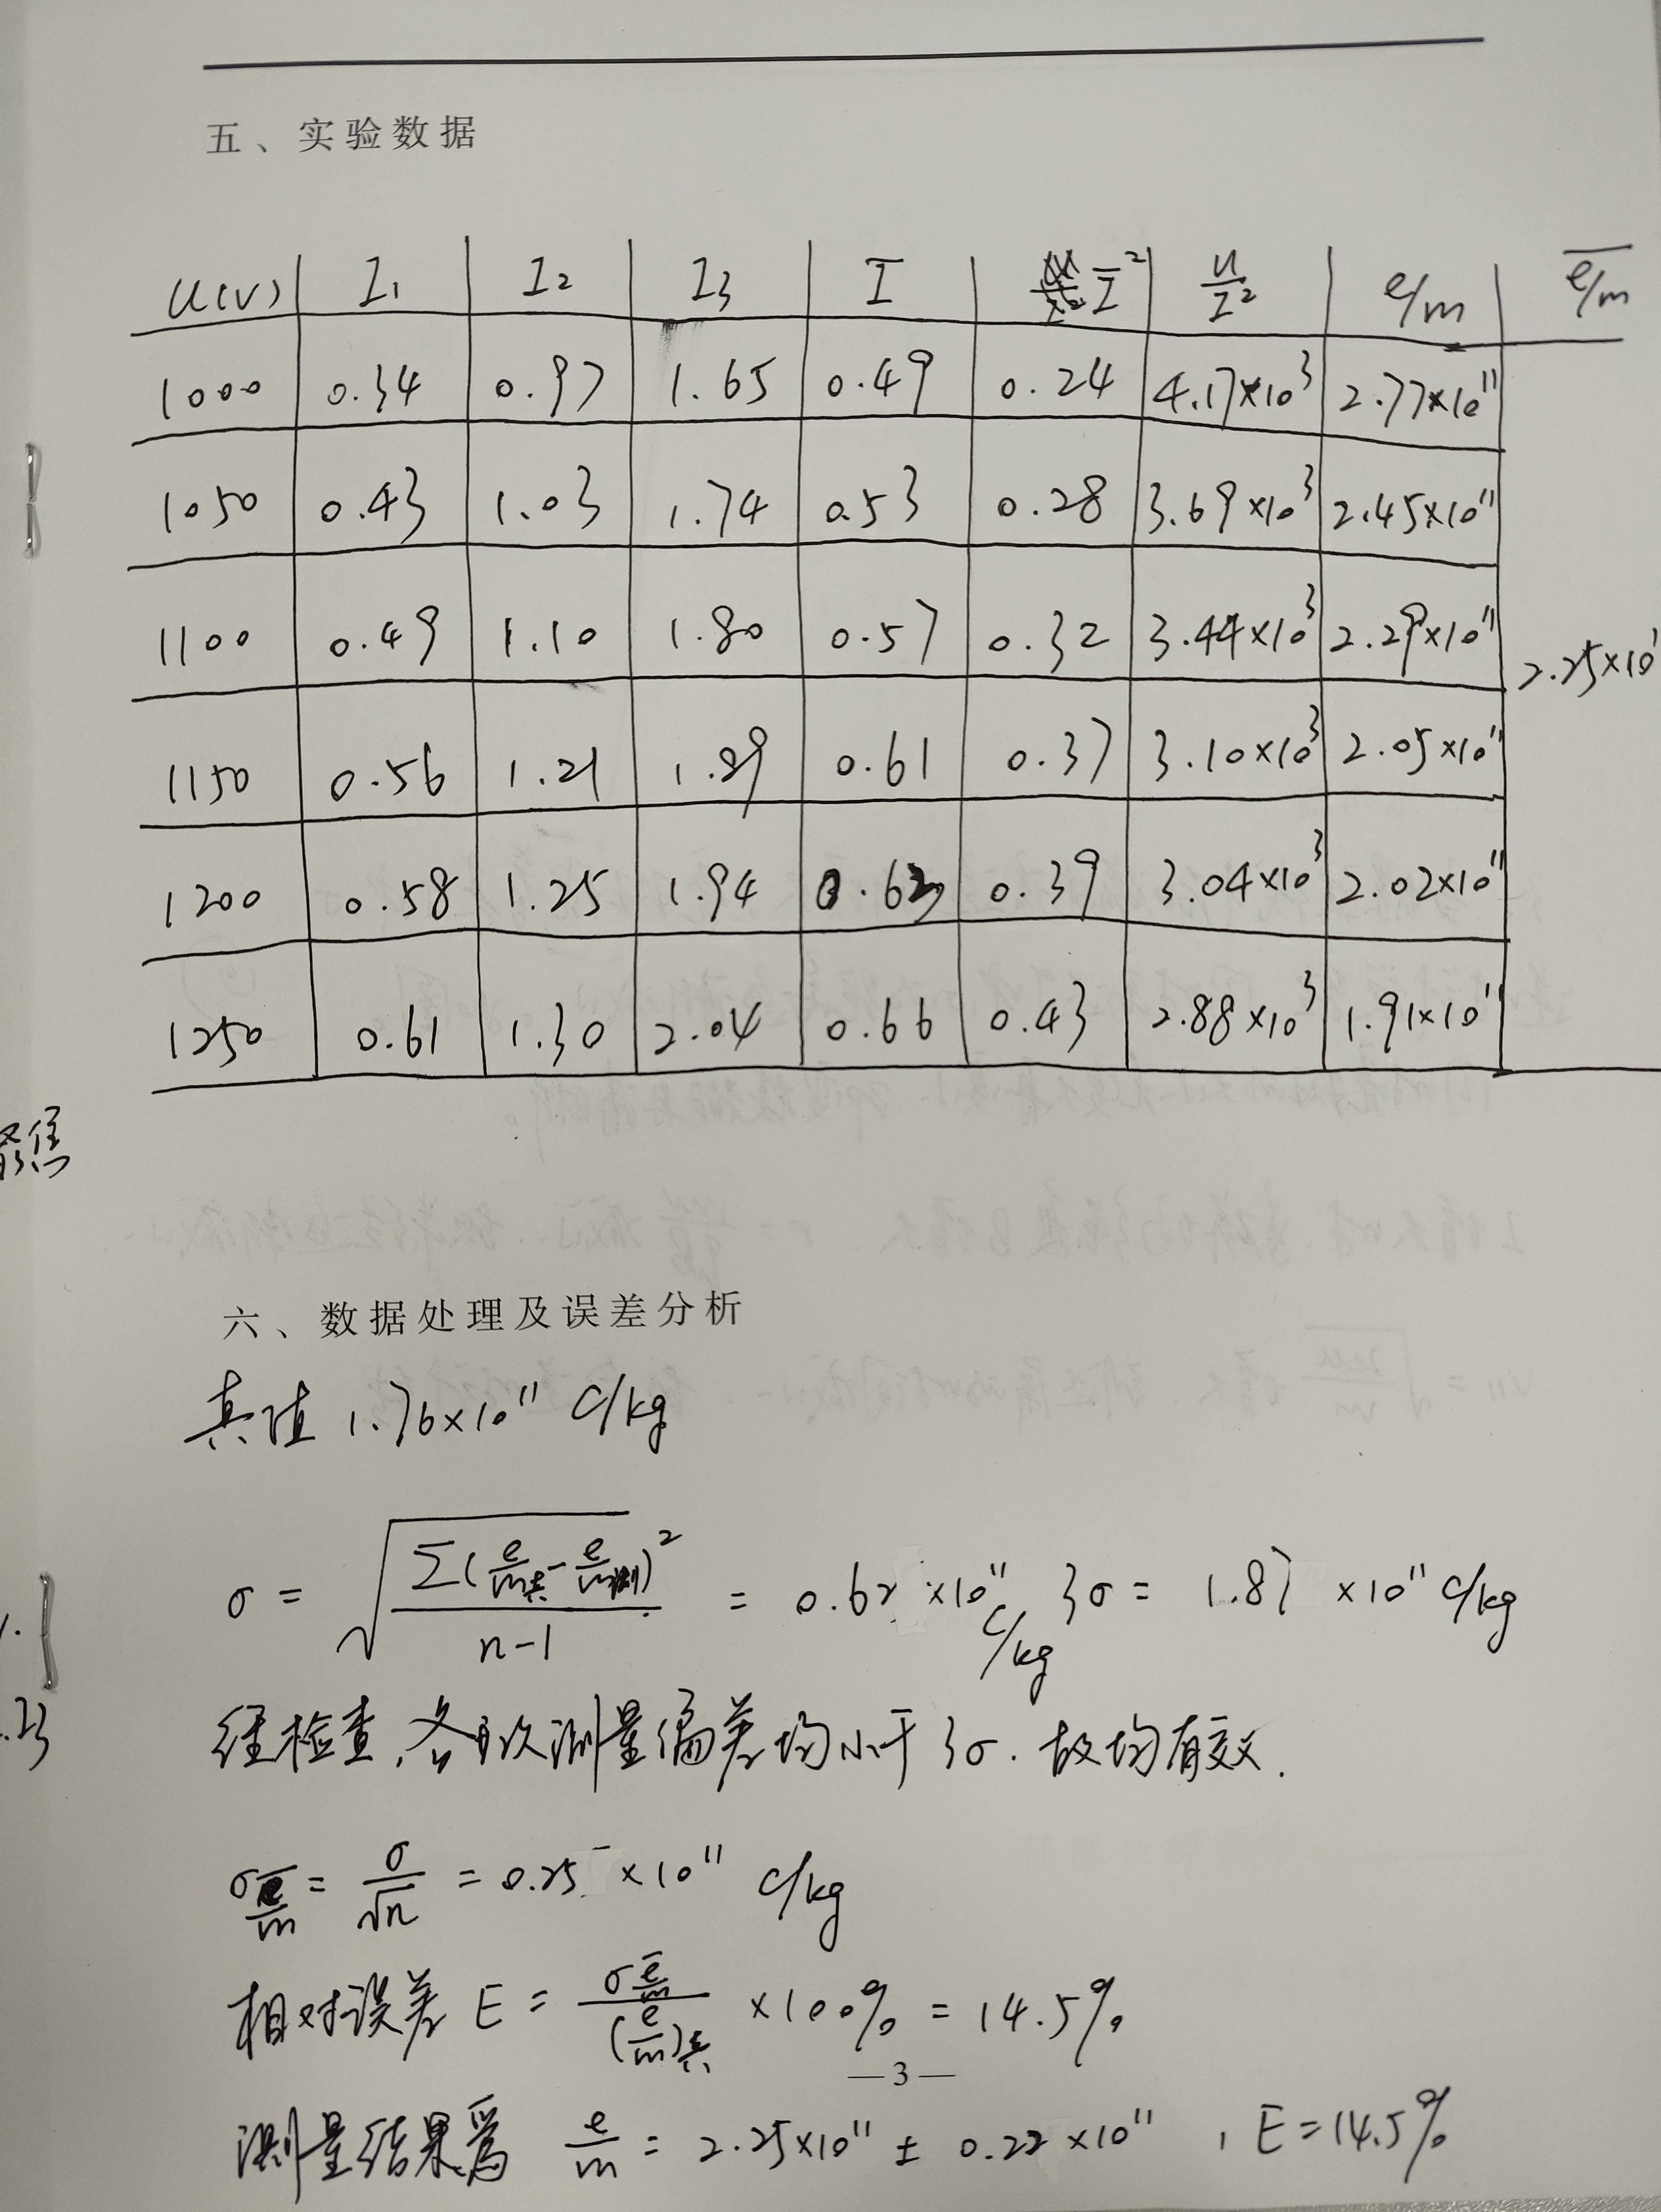 五、实验数据
U(V) I₁ I₂ I₃ I Ī² U/I² e/m e/m̅
1000 0.34 0.97 1.65 0.49 0.24 4.17×10³ 2.77×10¹¹
1050 0.43 1.03 1.74 0.53 0.28 3.69×10³ 2.45×10¹¹
1100 0.49 1.10 1.80 0.57 0.32 3.44×10³ 2.29×10¹¹
2.25×10¹
1150 0.56 1.21 1.89 0.61 0.37 3.10×10³ 2.05×10¹¹
1200 0.58 1.25 1.94 0.63 0.39 3.04×10³ 2.02×10¹¹
1250 0.61 1.30 2.04 0.66 0.43 2.88×10³ 1.91×10¹¹
聚焦
六、数据处理及误差分析
真值 1.76×10¹¹ C/kg
σ = √(Σ(e/m真 - e/m测)²/(n-1)) = 0.62 ×10¹¹ C/kg 3σ = 1.87 ×10¹¹ C/kg
经检查,各次测量偏差均小于3σ.故均有效.
σ e/m = σ/√n = 0.25 ×10¹¹ C/kg
相对误差 E = σ e/m / (e/m)真 ×100% = 14.5%
—3—
测量结果为 e/m = 2.25×10¹¹ ± 0.22×10¹¹ , E=14.5%